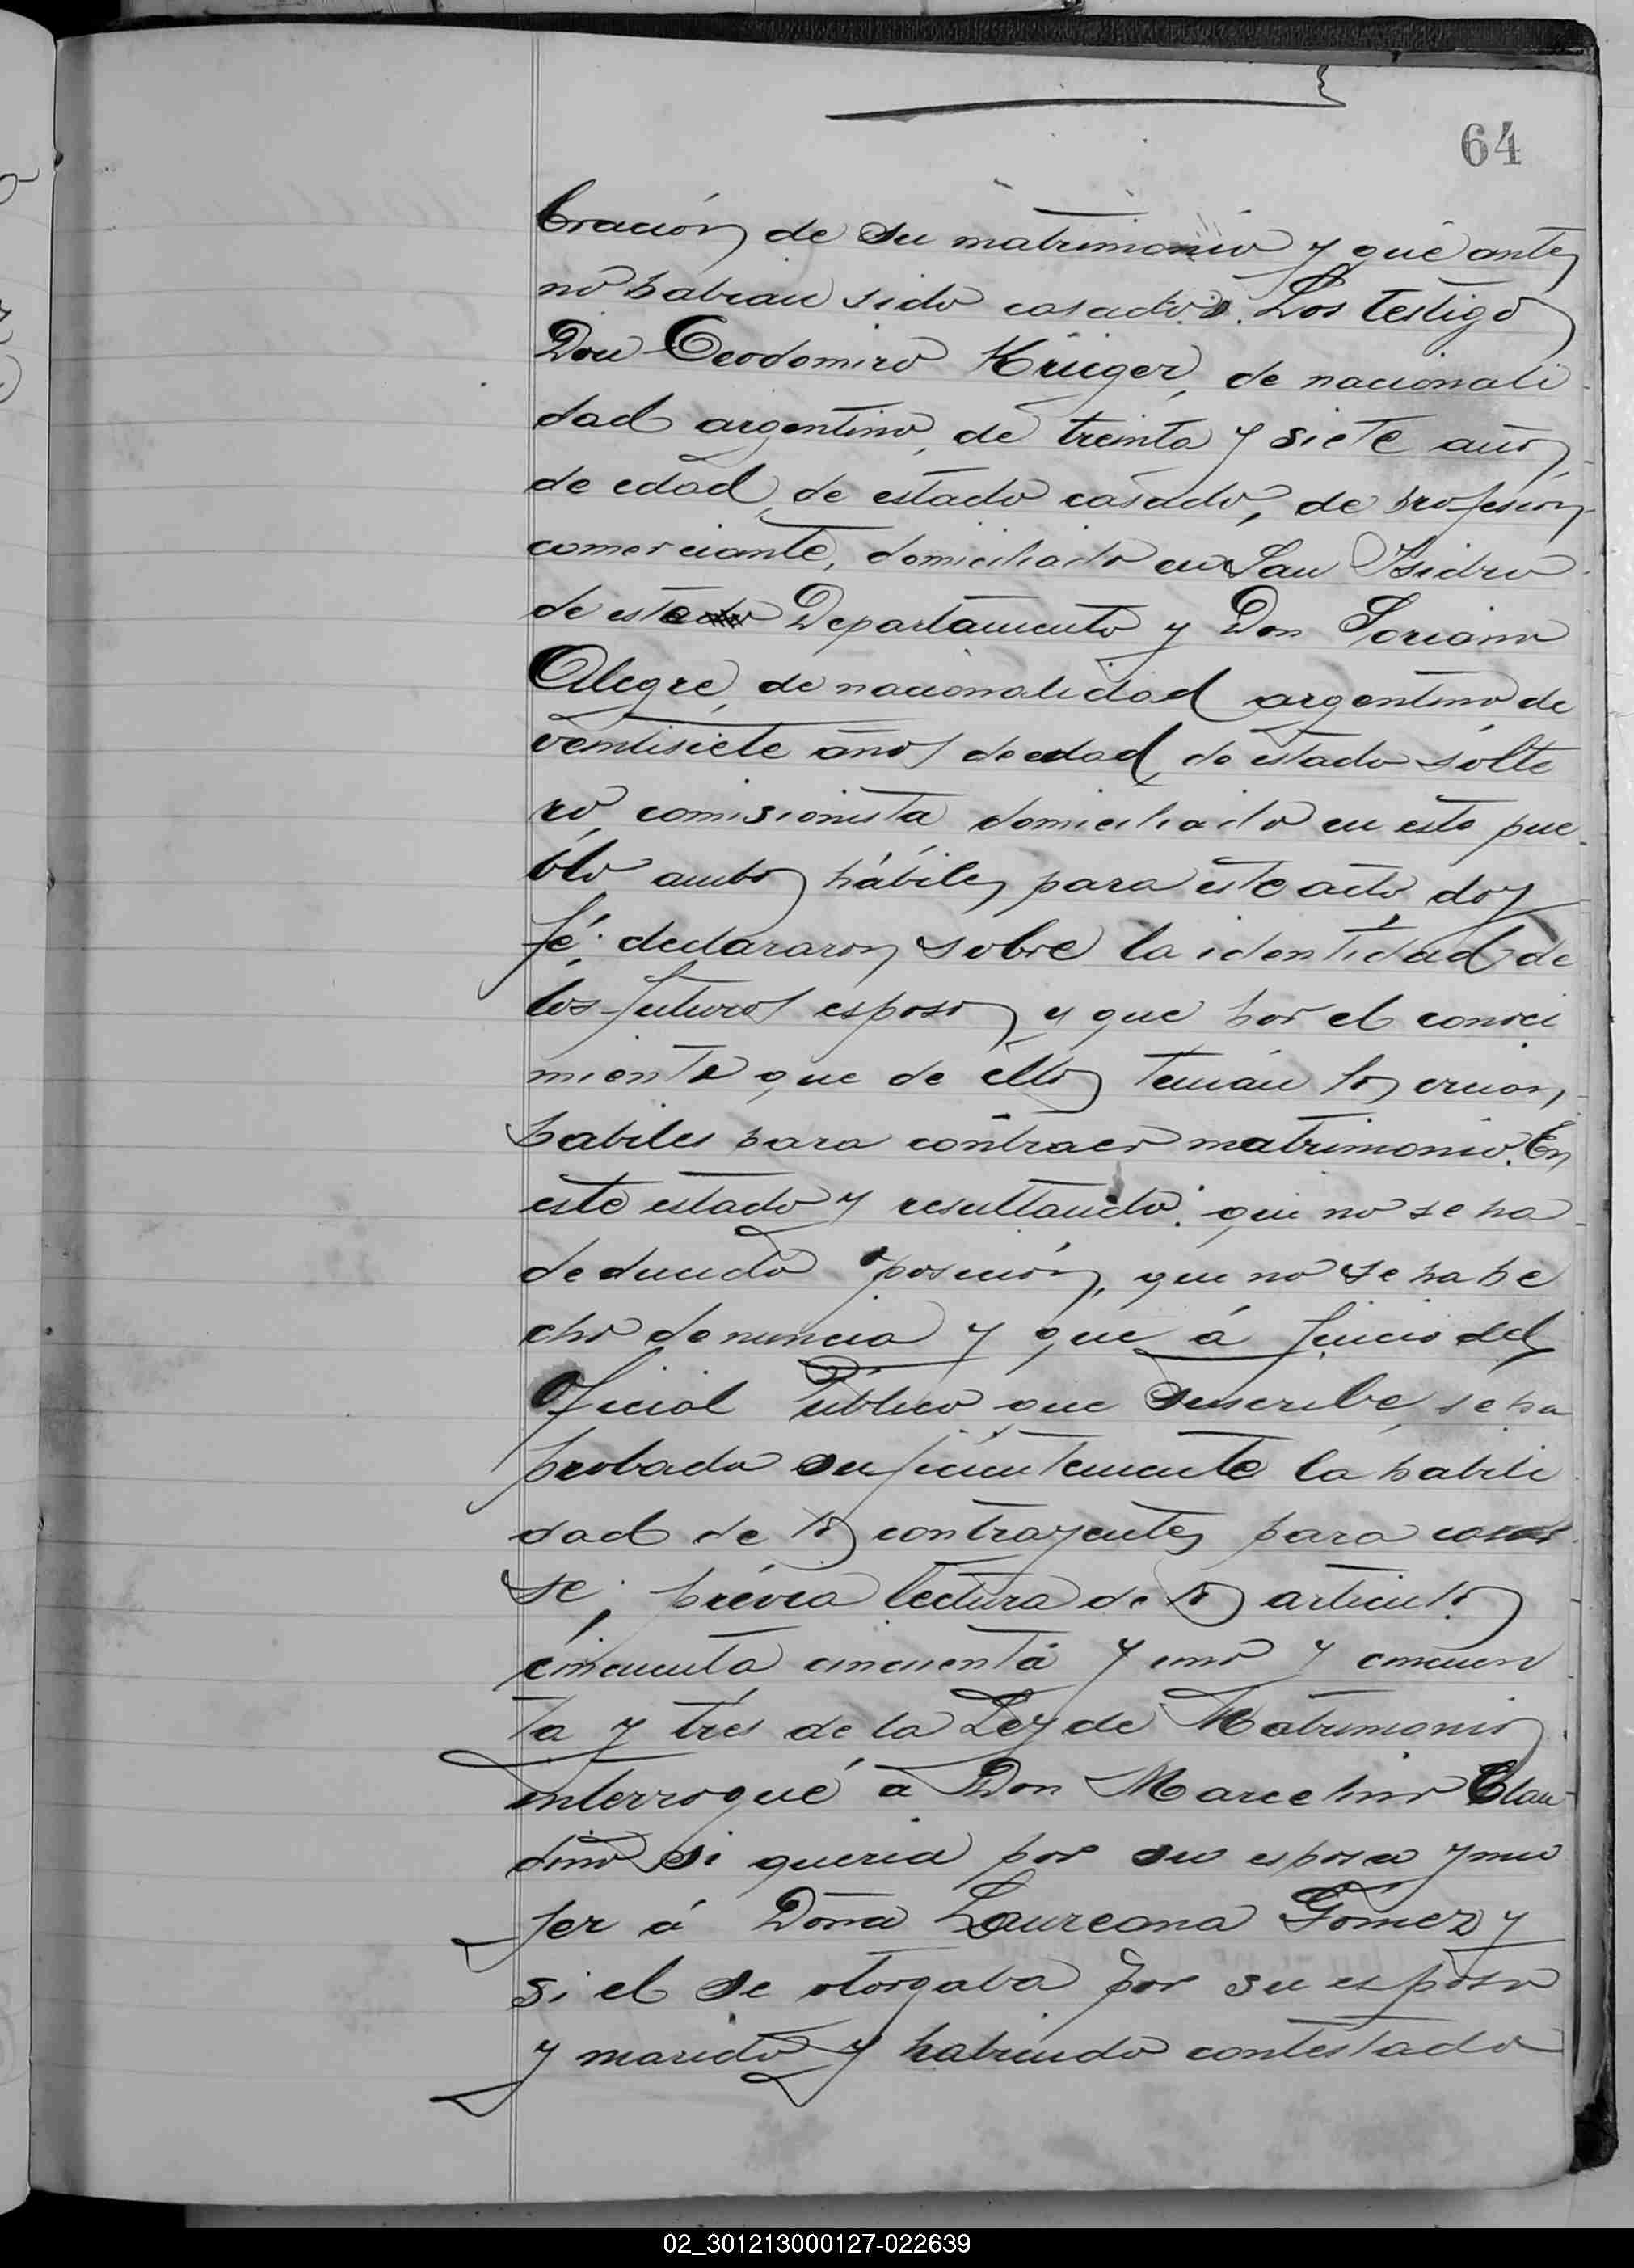 64
bración de su matrimonio y que antes
no habian sido casados. Los testigos
Don Teodomiro Krüger, de nacionali
dad argentino, de treinta y siete años
de edad, de estado casado, de profesión
comerciante, domiciliado en San Isidro
de este Departamento y Don Soriano
Alegre, de nacionalidad argentino de
veintisiete años de edad, de estado solte
ro, comisionista domiciliado en este pue
blo, ambos hábiles para este acto, doy
fé; declararon sobre la identidad de
los futuros esposos y que por el conoci
miento que de ellos tenían los creian
habiles para contraer matrimonio. En
este estado y resultando: que no se ha
deducido oposición, que no se ha he
cho denuncia y que á juicio del
Oficial Público que suscribe, se ha
probado suficientemente la habili
dad de los contrayentes para casar
se; prévia lectura de los articulos
cincuenta, cincuenta y uno y cincuen
ta y tres de la Ley de Matrimonio
interrogué a Don Marcelino Clau
dino si queria por su esposa y mu
jer á Doña Laureana Gómez y
si el se otorgaba por su esposo
y marido y habiendo contestado
02_301213000127-022639